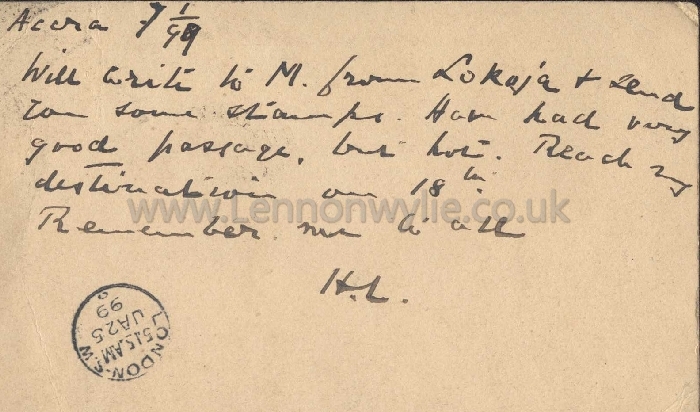 Accra 7/1/99
Will write to M. from Lokoja & send
you some stamps. Have had very
good passage, but hot. Reach my
destination on 18th.
Remember me to all
H.L.
www.Lennonwylie.co.uk
LONDON. S.W
5.15AM
JA 25
99